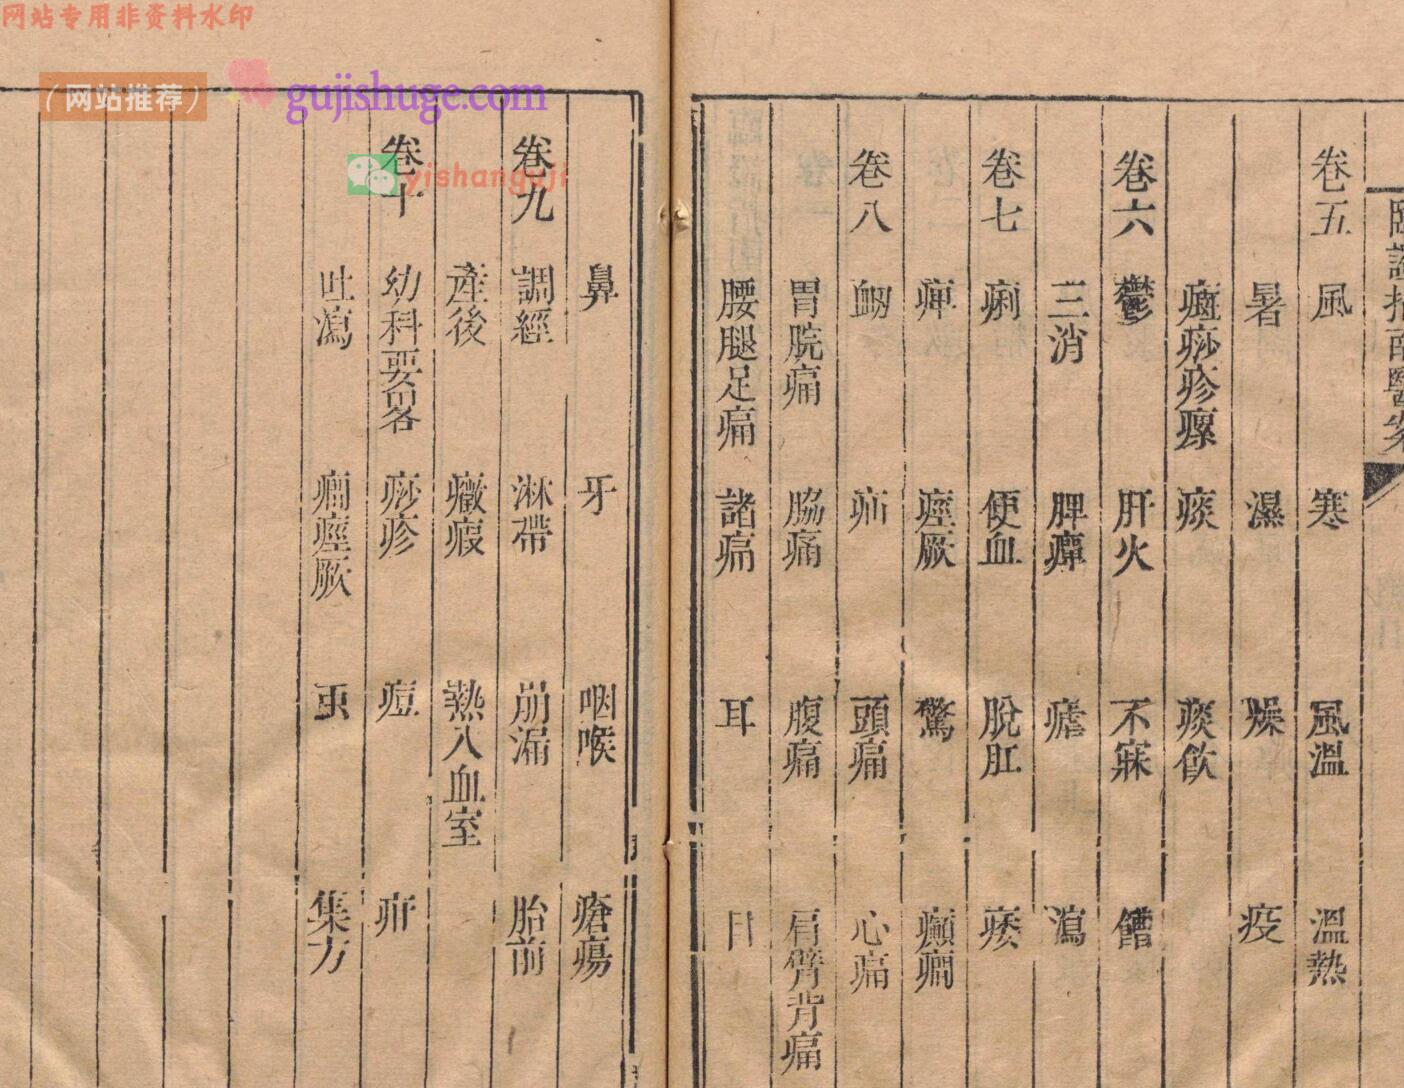 网站专用非资料水印
（网站推荐）
gujishuge.com
yishanguji
臨證指南醫案
卷五 風 寒 風溫 溫熱
暑 濕 燥 疫
癍痧疹瘰 痰 痰飲
卷六 鬱 肝火 不寐 嘈
三消 脾癉 瘧 瀉
卷七 痢 便血 脫肛 痿
痺 痙厥 驚 癲癇
卷八 衂 疝 頭痛 心痛
胃脘痛 脇痛 腹痛 肩臂背痛
腰腿足痛 諸痛 耳 目
鼻 牙 咽喉 瘡瘍
卷九 調經 淋帶 崩漏 胎前
產後 癥瘕 熱入血室
卷十 幼科要畧 痧疹 痘 疳
吐瀉 癇痙厥 䖝 集方